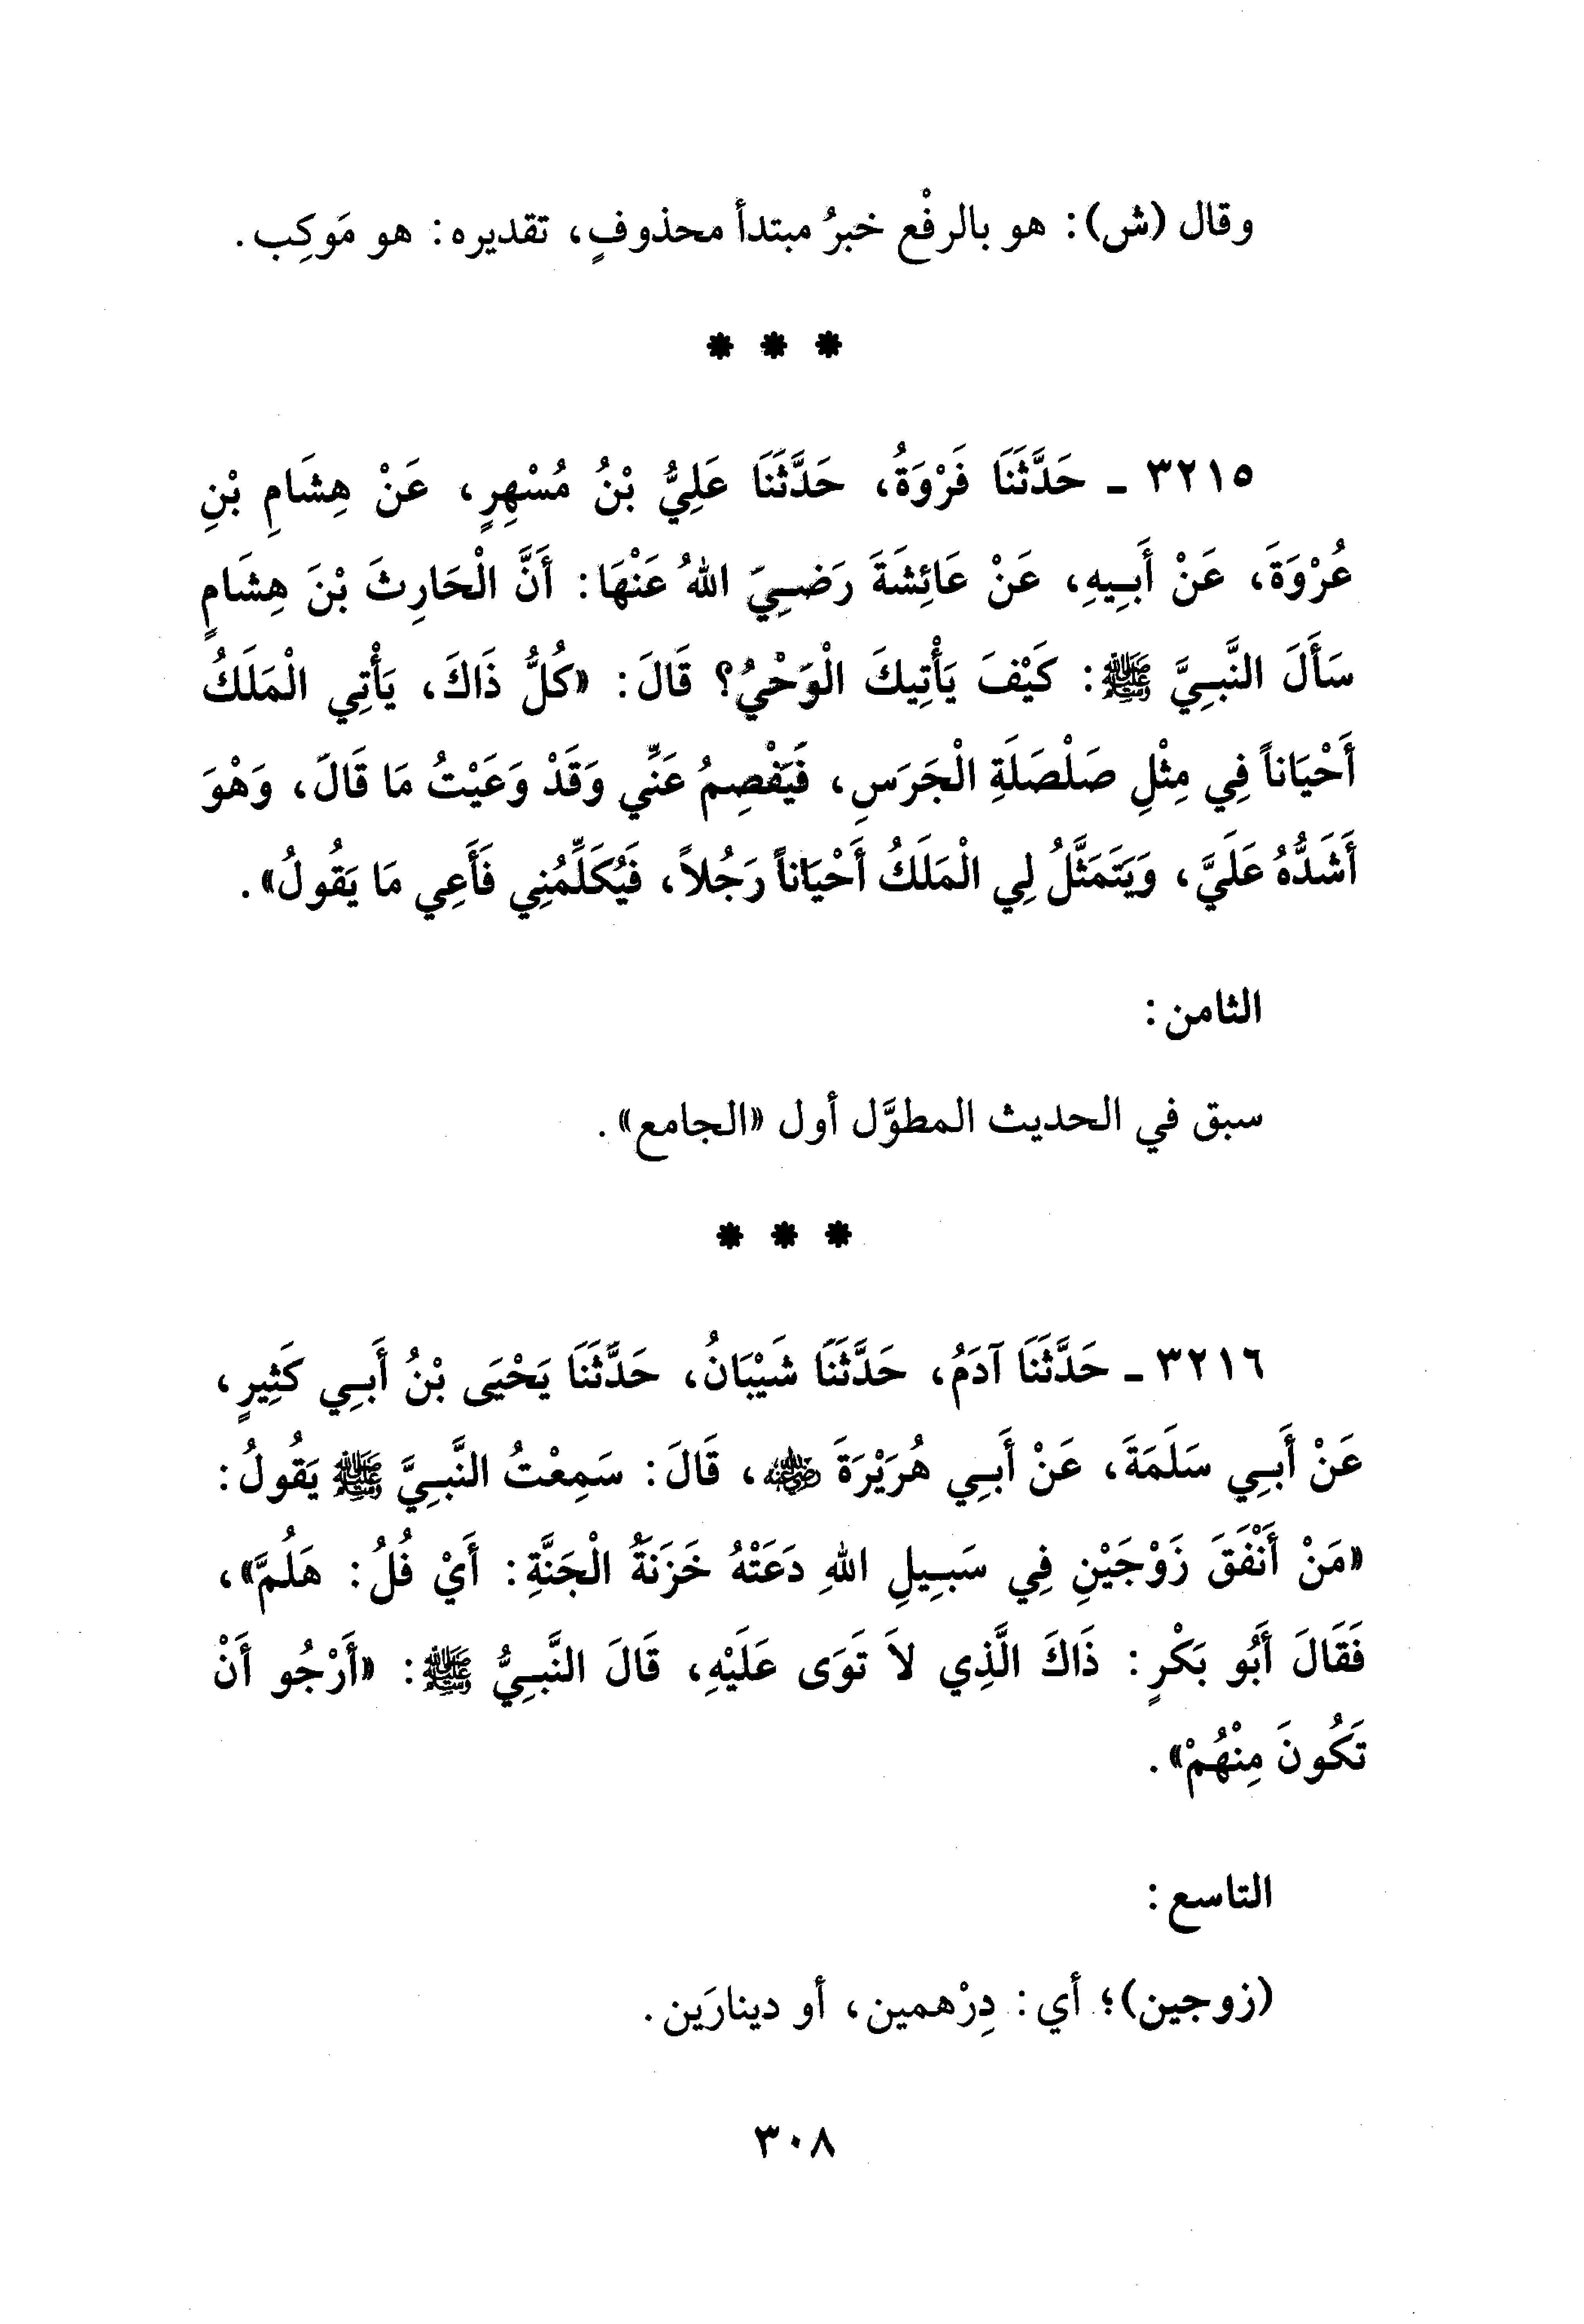 وقال (ش): هو بالرفْع خبرُ مبتدأ محذوفٍ، تقديره: هو مَوكِب.
* * *
٣٢١٥ ـ حَدَّثَنَا فَرْوَةُ، حَدَّثَنَا عَلِيُّ بْنُ مُسْهِرٍ، عَنْ هِشَامِ بْنِ
عُرْوَةَ، عَنْ أَبِيهِ، عَنْ عَائِشَةَ رَضِيَ اللهُ عَنْهَا: أَنَّ الْحَارِثَ بْنَ هِشَامٍ
سَأَلَ النَّبِيَّ ﷺ: كَيْفَ يَأْتِيكَ الْوَحْيُ؟ قَالَ: «كُلُّ ذَاكَ، يَأْتِي الْمَلَكُ
أَحْيَاناً فِي مِثْلِ صَلْصَلَةِ الْجَرَسِ، فَيَفْصِمُ عَنِّي وَقَدْ وَعَيْتُ مَا قَالَ، وَهْوَ
أَشَدُّهُ عَلَيَّ، وَيَتَمَثَّلُ لِي الْمَلَكُ أَحْيَاناً رَجُلاً، فَيُكَلِّمُنِي فَأَعِي مَا يَقُولُ».
الثامن:
سبق في الحديث المطوَّل أول «الجامع».
* * *
٣٢١٦ ـ حَدَّثَنَا آدَمُ، حَدَّثَنَا شَيْبَانُ، حَدَّثَنَا يَحْيَى بْنُ أَبِي كَثِيرٍ،
عَنْ أَبِي سَلَمَةَ، عَنْ أَبِي هُرَيْرَةَ ﷺ، قَالَ: سَمِعْتُ النَّبِيَّ ﷺ يَقُولُ:
«مَنْ أَنْفَقَ زَوْجَيْنِ فِي سَبِيلِ اللهِ دَعَتْهُ خَزَنَةُ الْجَنَّةِ: أَيْ فُلُ: هَلُمَّ»،
فَقَالَ أَبُو بَكْرٍ: ذَاكَ الَّذِي لاَ تَوَى عَلَيْهِ، قَالَ النَّبِيُّ ﷺ: «أَرْجُو أَنْ
تَكُونَ مِنْهُمْ».
التاسع:
(زوجين)؛ أي: دِرْهمين، أو دينارَين.
٣٠٨